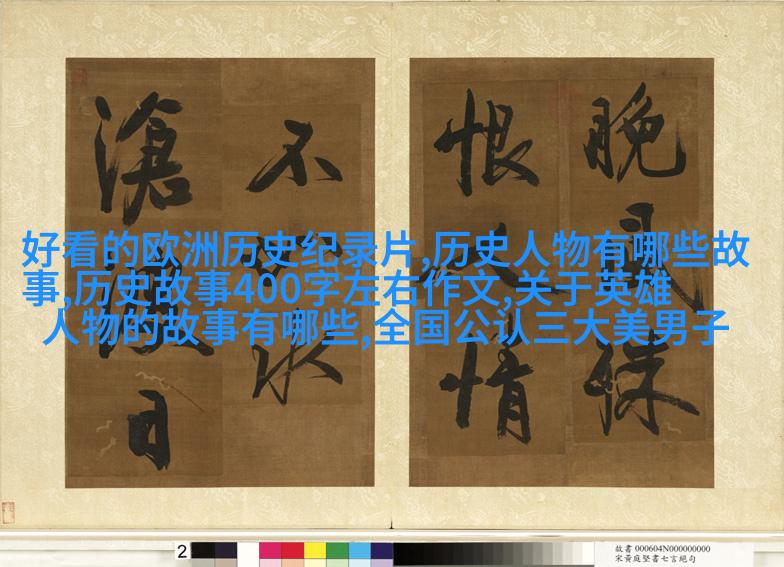 晚 殊
恨 情
不 水
滄 日
好看的欧洲历史纪录片,历史人物有哪些故
事,历史故事400字左右作文,关于英雄
人物的故事有哪些,全国公认三大美男子
2
故書 000604N000000000
宋黃庭堅書七言絕句